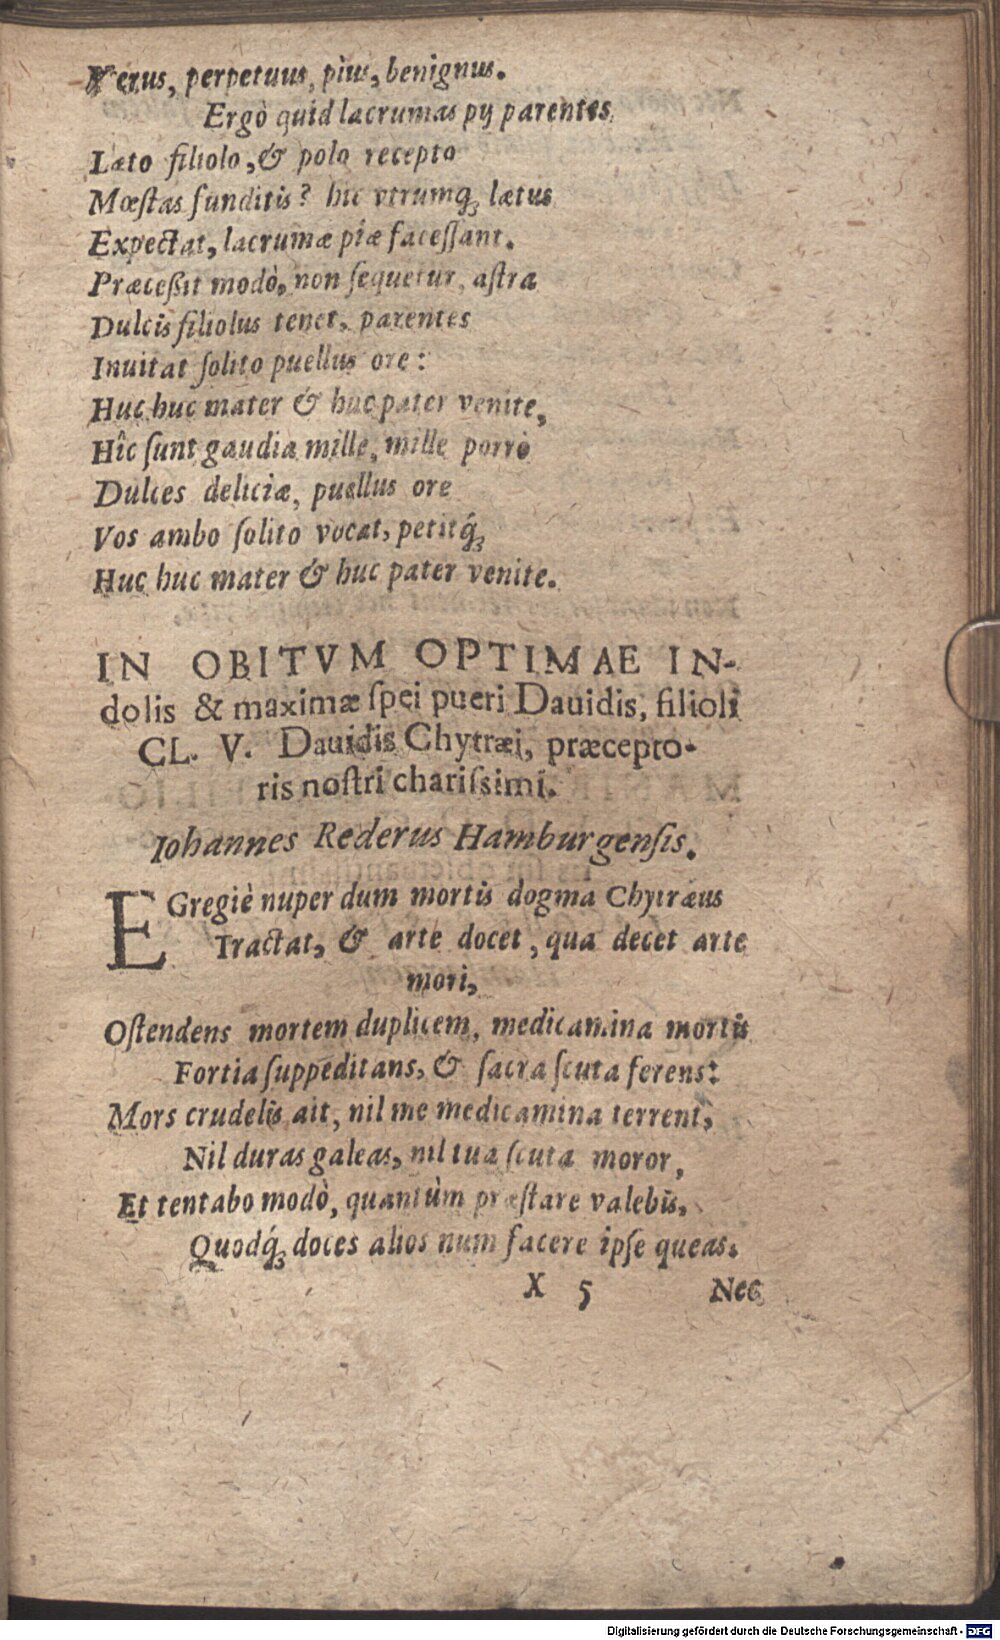 Verus, perpetuus, pius, benignus.
Ergò quid lacrumas pij parentes
Læto filiolo, & polo recepto
Mœstas funditis? hic vtrumq́ꝫ lætus
Expectat, lacrumæ piæ facessant.
Præceßit modò, non sequetur, astra
Dulcis filiolus tenet, parentes
Inuitat solito puellus ore:
Huc huc mater & huc pater venite,
Hîc sunt gaudia mille, mille porrò
Dulces deliciæ, puellus ore
Vos ambo solito vocat, petitq́ꝫ
Huc huc mater & huc pater venite.
IN OBITVM OPTIMAE IN-
dolis & maximæ spei pueri Dauidis, filioli
CL. V. Dauidis Chytræi, præcepto-
ris nostri charissimi.
Iohannes Rederus Hamburgensis.
EGregiè nuper dum mortis dogma Chytræus
Tractat, & arte docet, qua decet arte
mori,
Ostendens mortem duplicem, medicamina mortis
Fortia suppeditans, & sacra scuta ferens:
Mors crudelis ait, nil me medicamina terrent,
Nil duras galeas, nil tua scuta moror,
Et tentabo modò, quantùm præstare valebis,
Quodq́ꝫ doces alios num facere ipse queas.
X 5 Nec
Digitalisierung gefördert durch die Deutsche Forschungsgemeinschaft - DFG